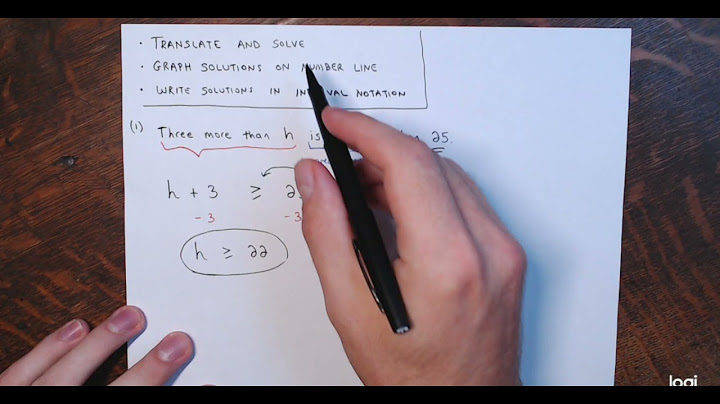 · TRANSLATE AND SOLVE
· GRAPH SOLUTIONS ON NUMBER LINE
· WRITE SOLUTIONS IN INTERVAL NOTATION
(1) Three more than h is 25.
h + 3 ≥
-3 -3
h ≥ 22
logi